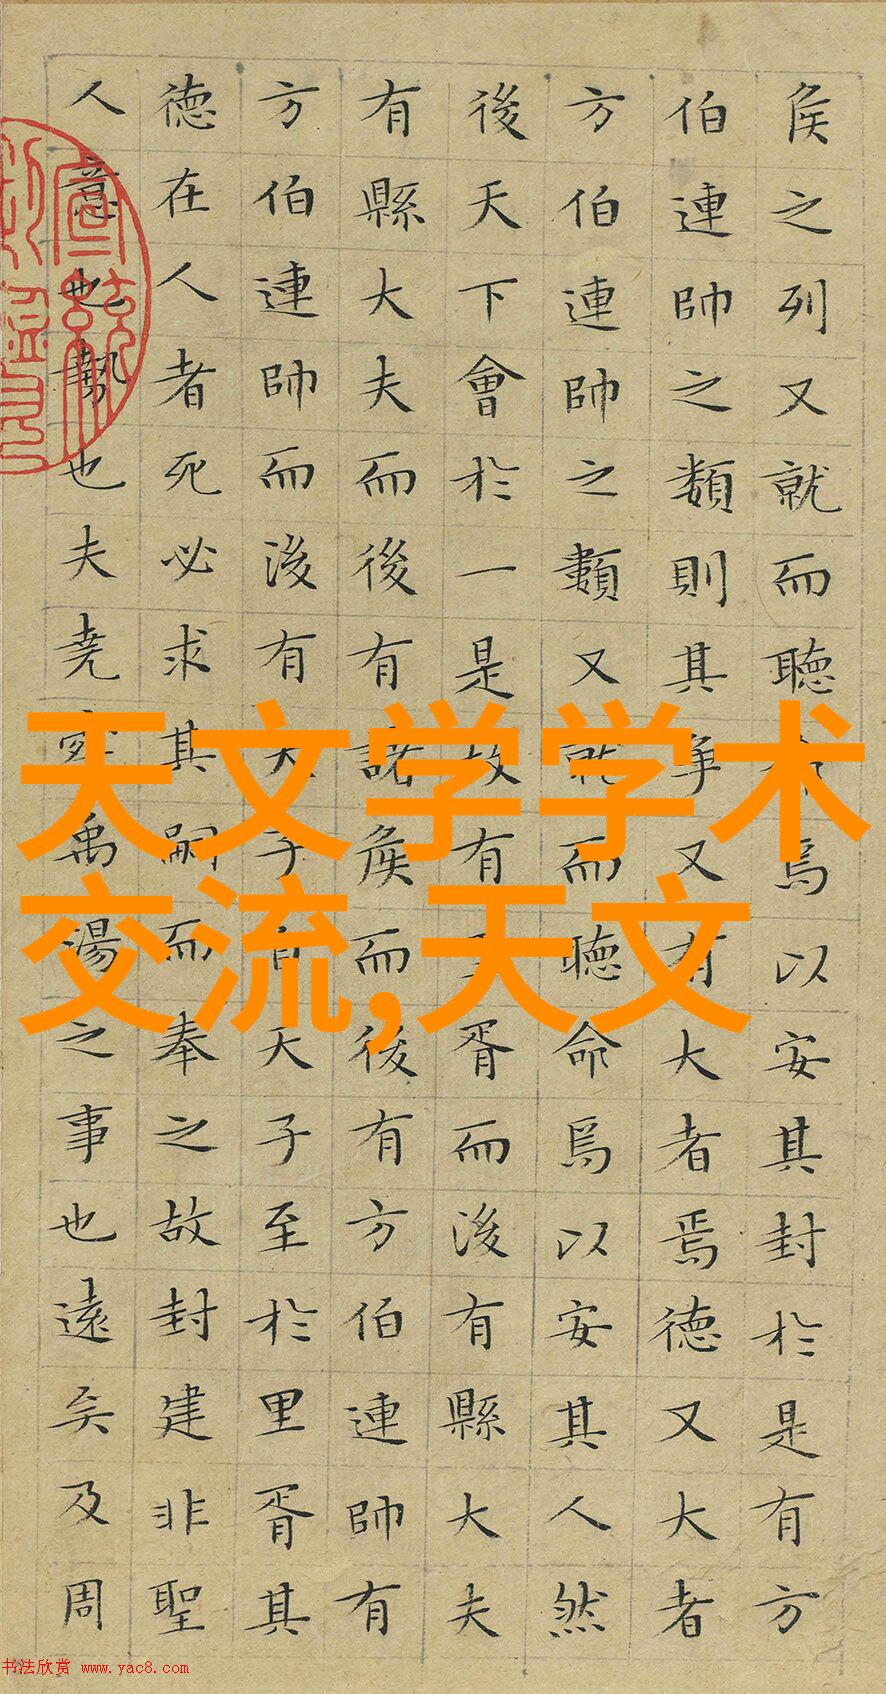 侯之列又就而聽命焉以安其封於是有方
伯連帥之類則其爭又有大者焉德又大者
方伯連帥之類又就而聽命焉以安其人然
後天下會於一是故有里胥而後有縣大夫
有縣大夫而後有諸侯而後有方伯連帥有
方伯連帥而後有天子自天子至於里胥其
德在人者死必求其嗣而奉之故封建非聖
人意也勢也夫堯舜禹湯之事也遠矣及周
天文学学术
交流,天文
书法欣赏 www.yac8.com